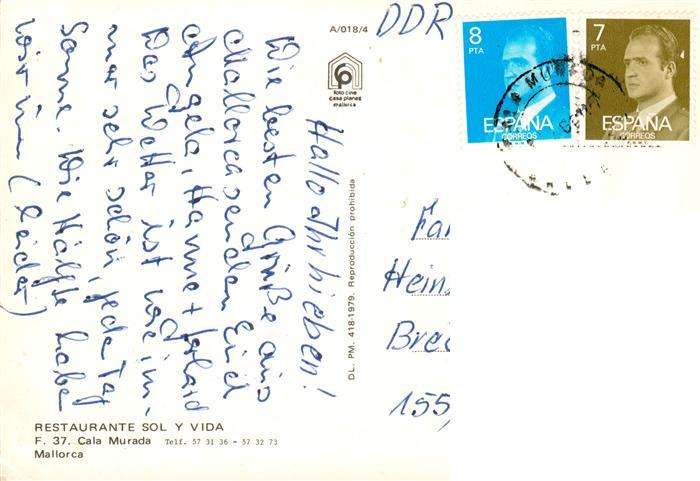 Hallo Ihr Lieben!
Die besten Grüße aus
Mallorca senden Euch
Angela, Hanne +
Das Wetter ist wie im-
mer sehr schön, jeden Tag
Sonne. Die Hälfte haben
wir um (leider)
A/018/4
foto cine
casa planas
mallorca
D.L. PM. 418-1979. Reproducción prohibida
RESTAURANTE SOL Y VIDA
F. 37. Cala Murada Telf. 57 31 36 - 57 32 73
Mallorca
DDR
8
PTA
ESPAÑA
CORREOS
7
PTA
ESPAÑA
CORREOS
Fa
Hein
Bre
155